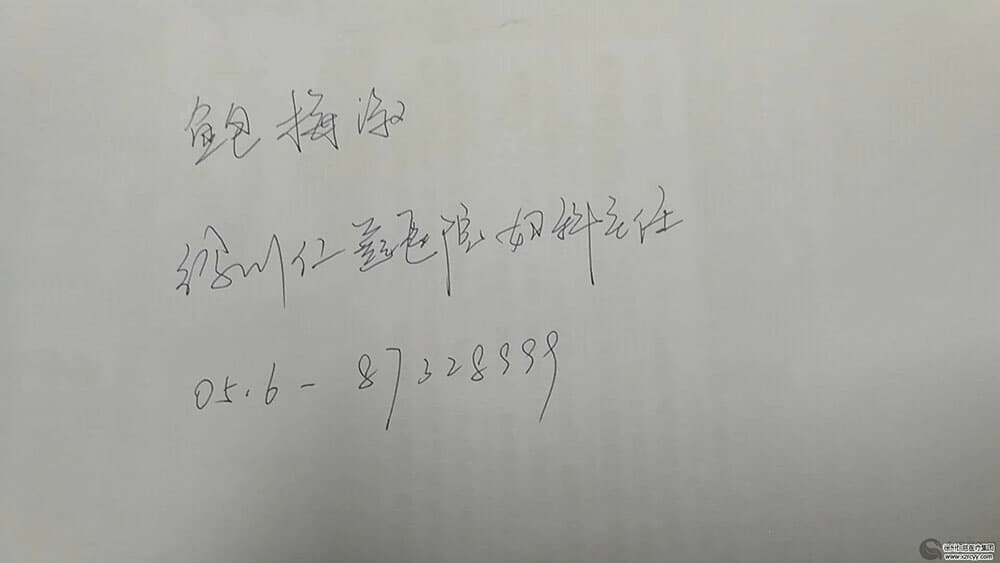 鲍梅淑
徐州仁慈医院妇科主任
0516-87328999
徐州仁慈医疗集团
www.xzrcyy.com